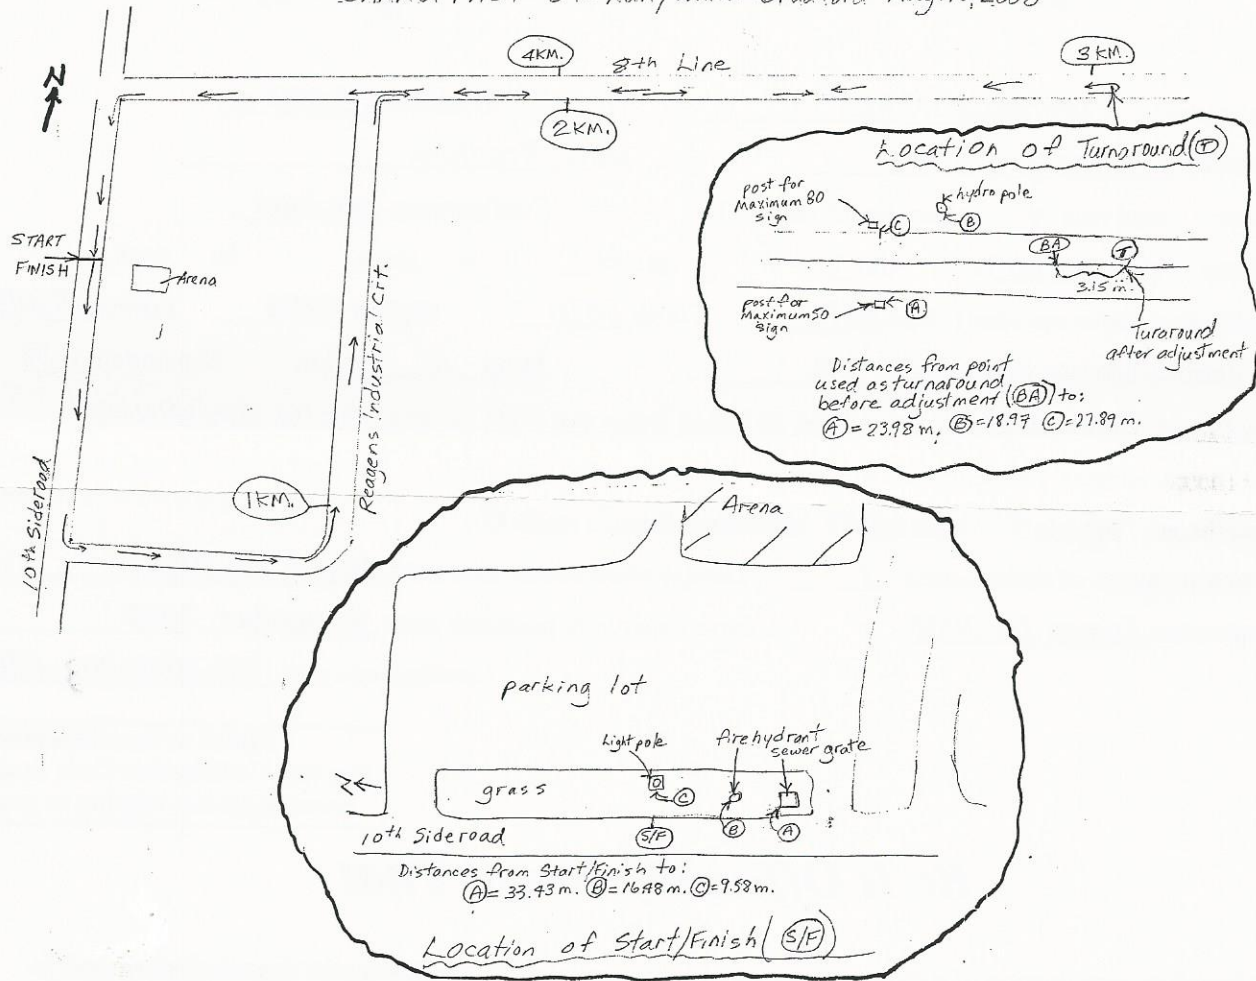 N
4KM.
8th Line
3 KM.
2KM.
START
FINISH
Arena
Reagens Industrial Crt.
1KM.
10th Sideroad
Location of Turnaround (T)
post for
Maximum 80
sign
C
hydro pole
B
BA
T
3.15 m.
post for
Maximum 50
sign
A
Turaround
after adjustment
Distances from point
used as turnaround
before adjustment (BA) to:
A = 23.98 m. B = 18.97 C = 27.89 m.
Arena
parking lot
Light pole
fire hydrant
sewer grate
N
grass
C
S/F
B
A
10th Sideroad
Distances from Start/Finish to:
A = 33.43 m. B = 16.48 m. C = 9.58 m.
Location of Start/Finish (S/F)